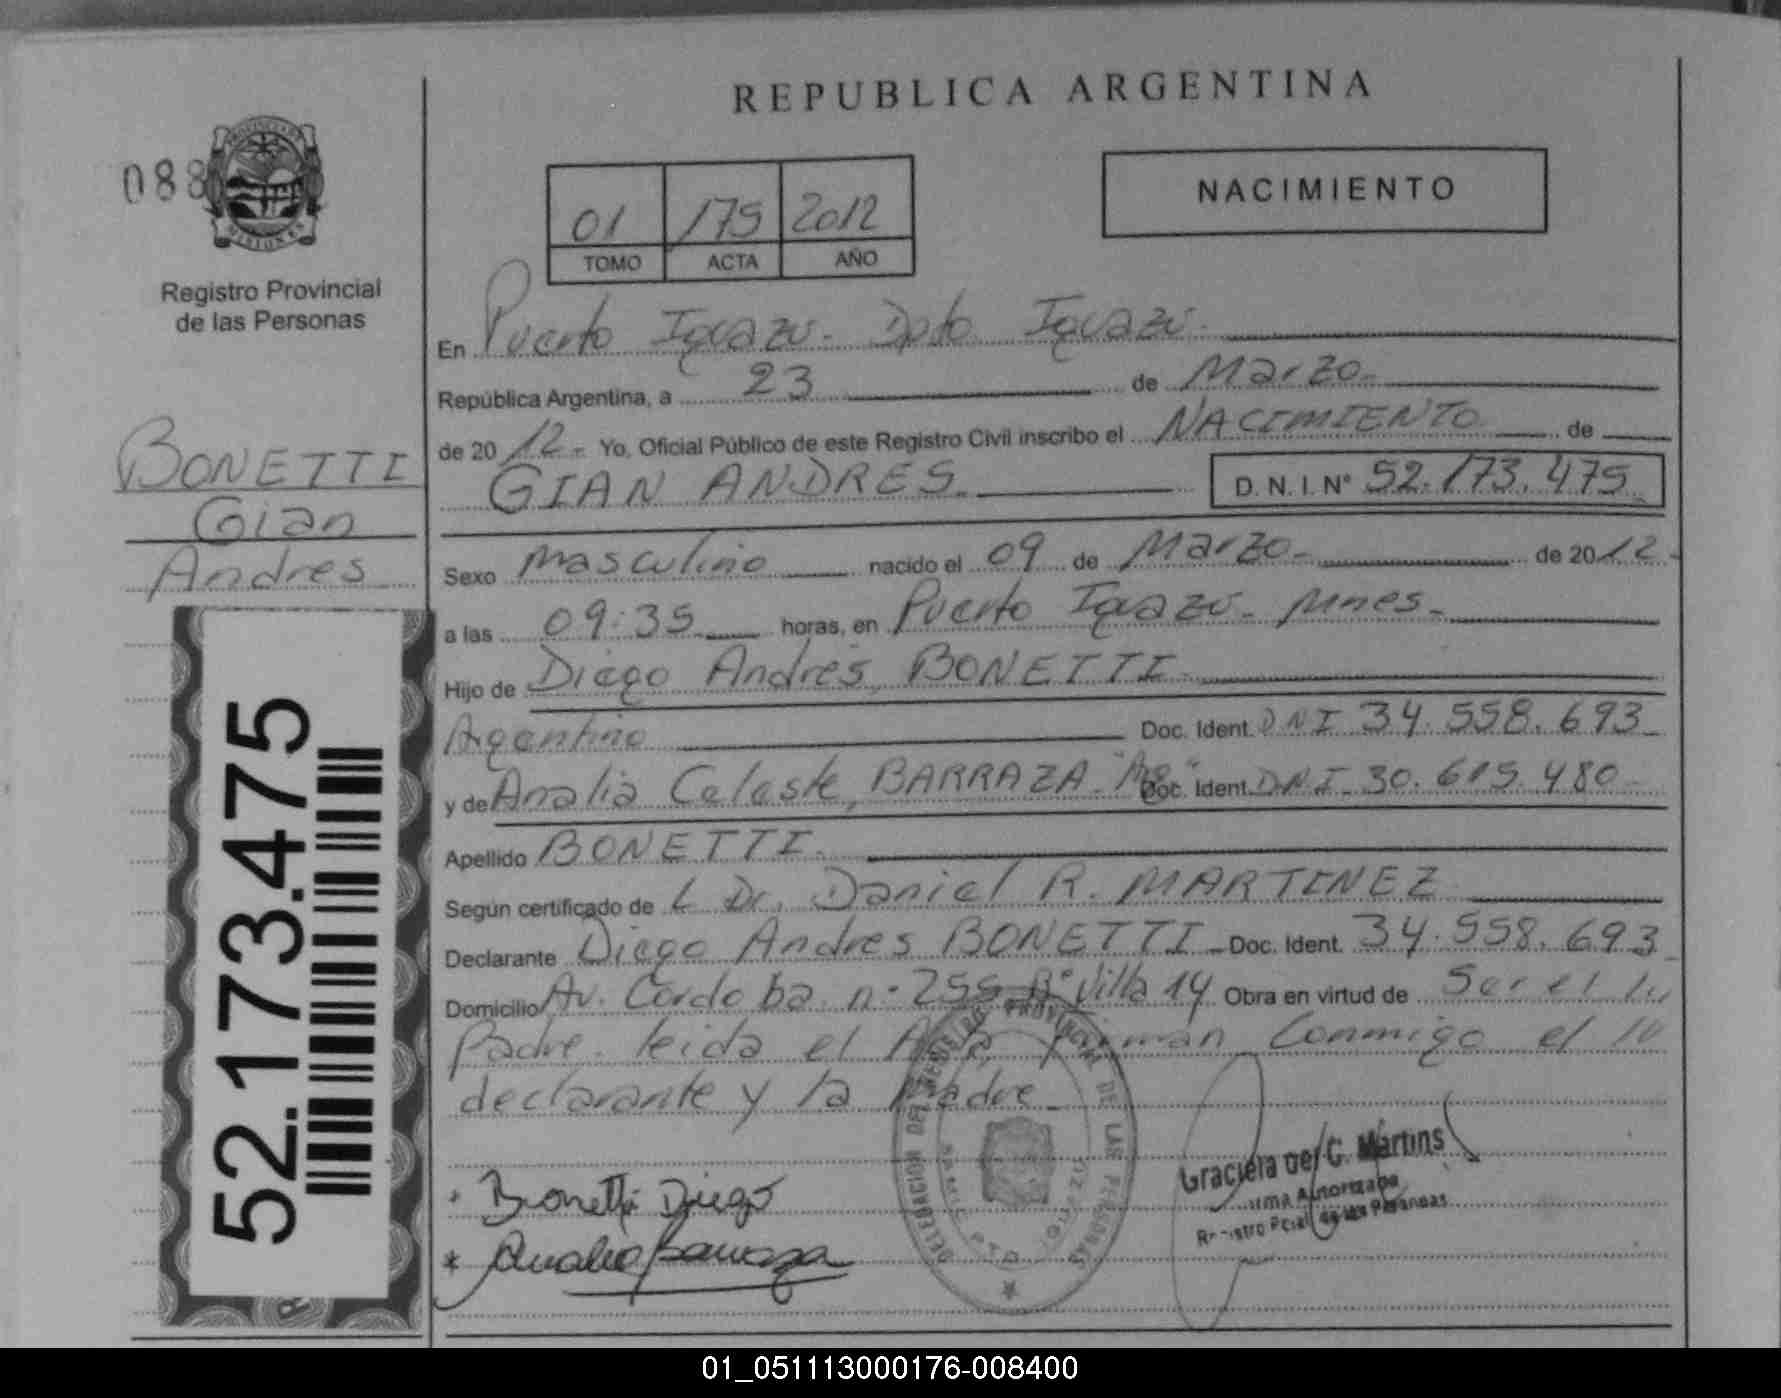 REPUBLICA ARGENTINA
088
PROVINCIA DE
MISIONES
Registro Provincial
de las Personas
01 175 2012
TOMO ACTA AÑO
NACIMIENTO
En Puerto Iguazú - Dpto. Iguazú.
República Argentina, a 23 de Marzo -
de 20 12 - Yo, Oficial Público de este Registro Civil inscribo el NACIMIENTO de
GIAN ANDRES D. N. I. N° 52.173.475
BONETTI
Gian
Andres
Sexo Masculino nacido el 09 de Marzo - de 20 12 -
a las 09:35 horas, en Puerto Iguazú - Mnes -
Hijo de Diego Andrés, BONETTI
Argentino Doc. Ident. DNI 34.558.693
y de Analia Celeste, BARRAZA - "Arg" Doc. Ident. DNI - 30.615.480 -
Apellido BONETTI.
Según certificado de Dr. Daniel R. MARTINEZ
Declarante Diego Andres BONETTI - Doc. Ident. 34.558.693
Domicilio Av. Cordoba n° 255 B° Villa 14 Obra en virtud de Ser el
Padre. leida el Acta, firman Conmigo el
declarante y la Madre
52.173.475
Bonetti Diego
* Analia Barraza
DELEGACION DEL REGISTRO PROVINCIAL DE LAS PERSONAS
IGUAZU
Graciela del C. Martins
Firma Autorizada
Registro Pcial. de las Personas
01_051113000176-008400